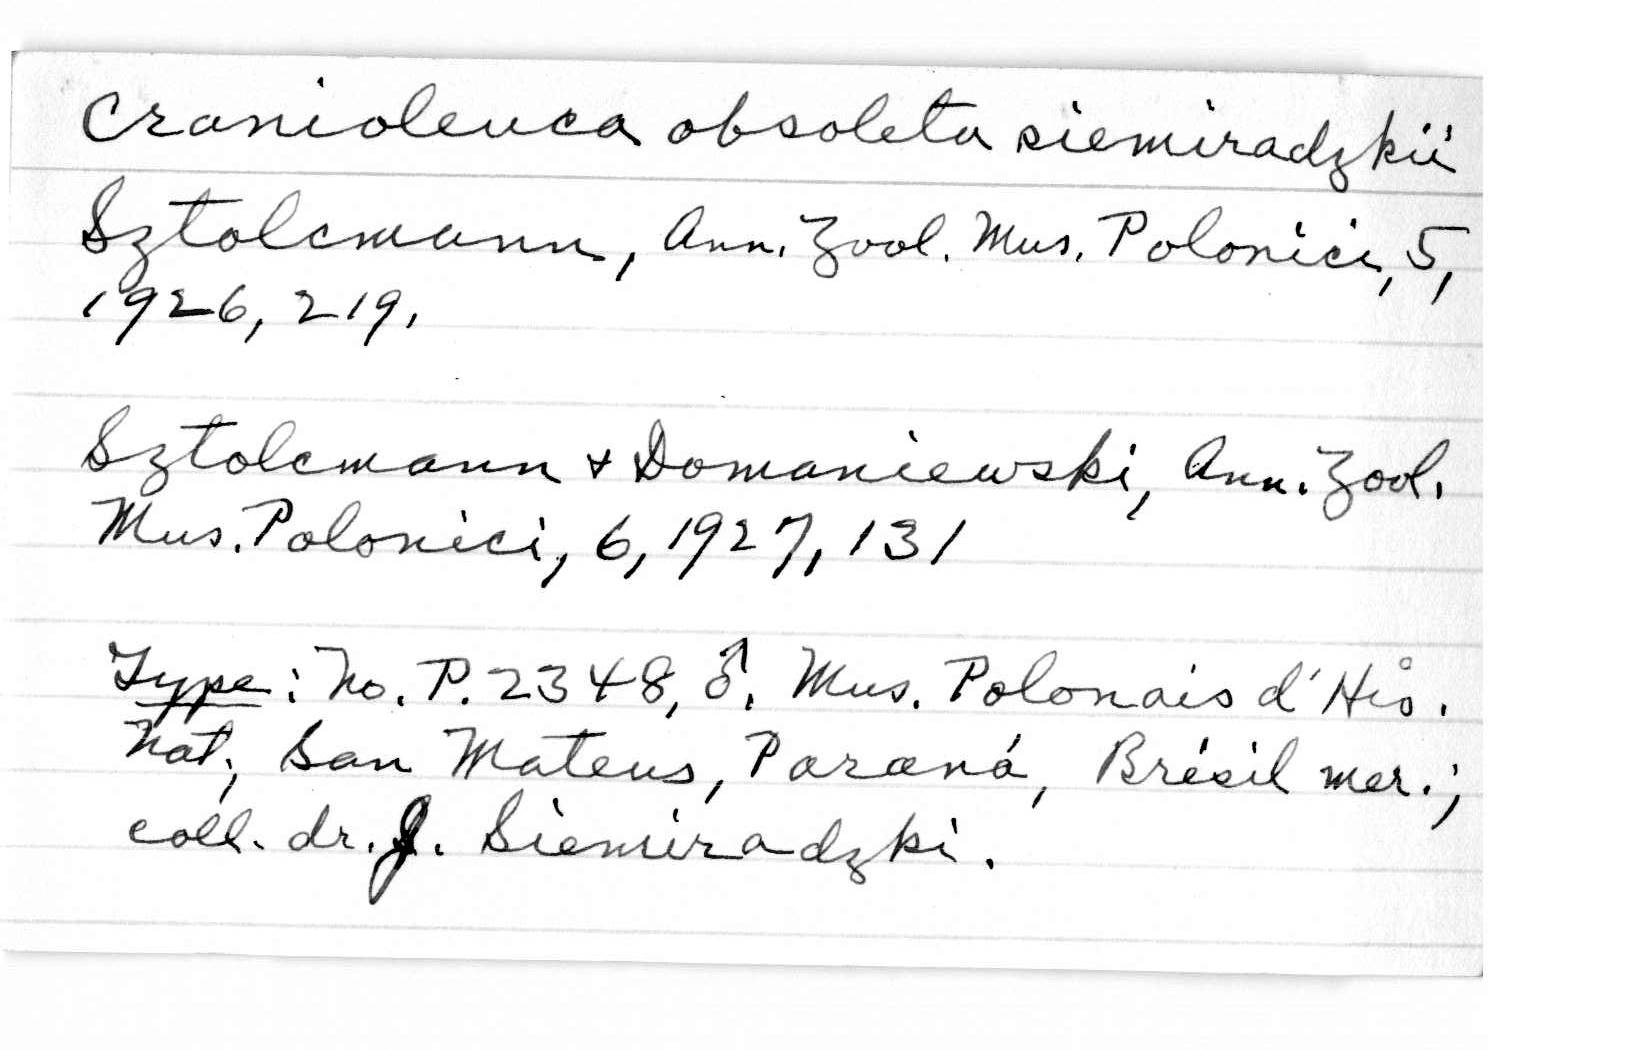 Cranioleuca obsoleta siemiradzkii
Sztolcmann, Ann. Zool. Mus. Polonici, 5,
1926, 219.
Sztolcmann & Domaniewski, Ann. Zool.
Mus. Polonici, 6, 1927, 131
Type: No. P. 2348, ♂. Mus. Polonais d'His.
Nat; San Mateus, Paraná, Brésil mer.;
coll. dr. J. Siemiradzki.